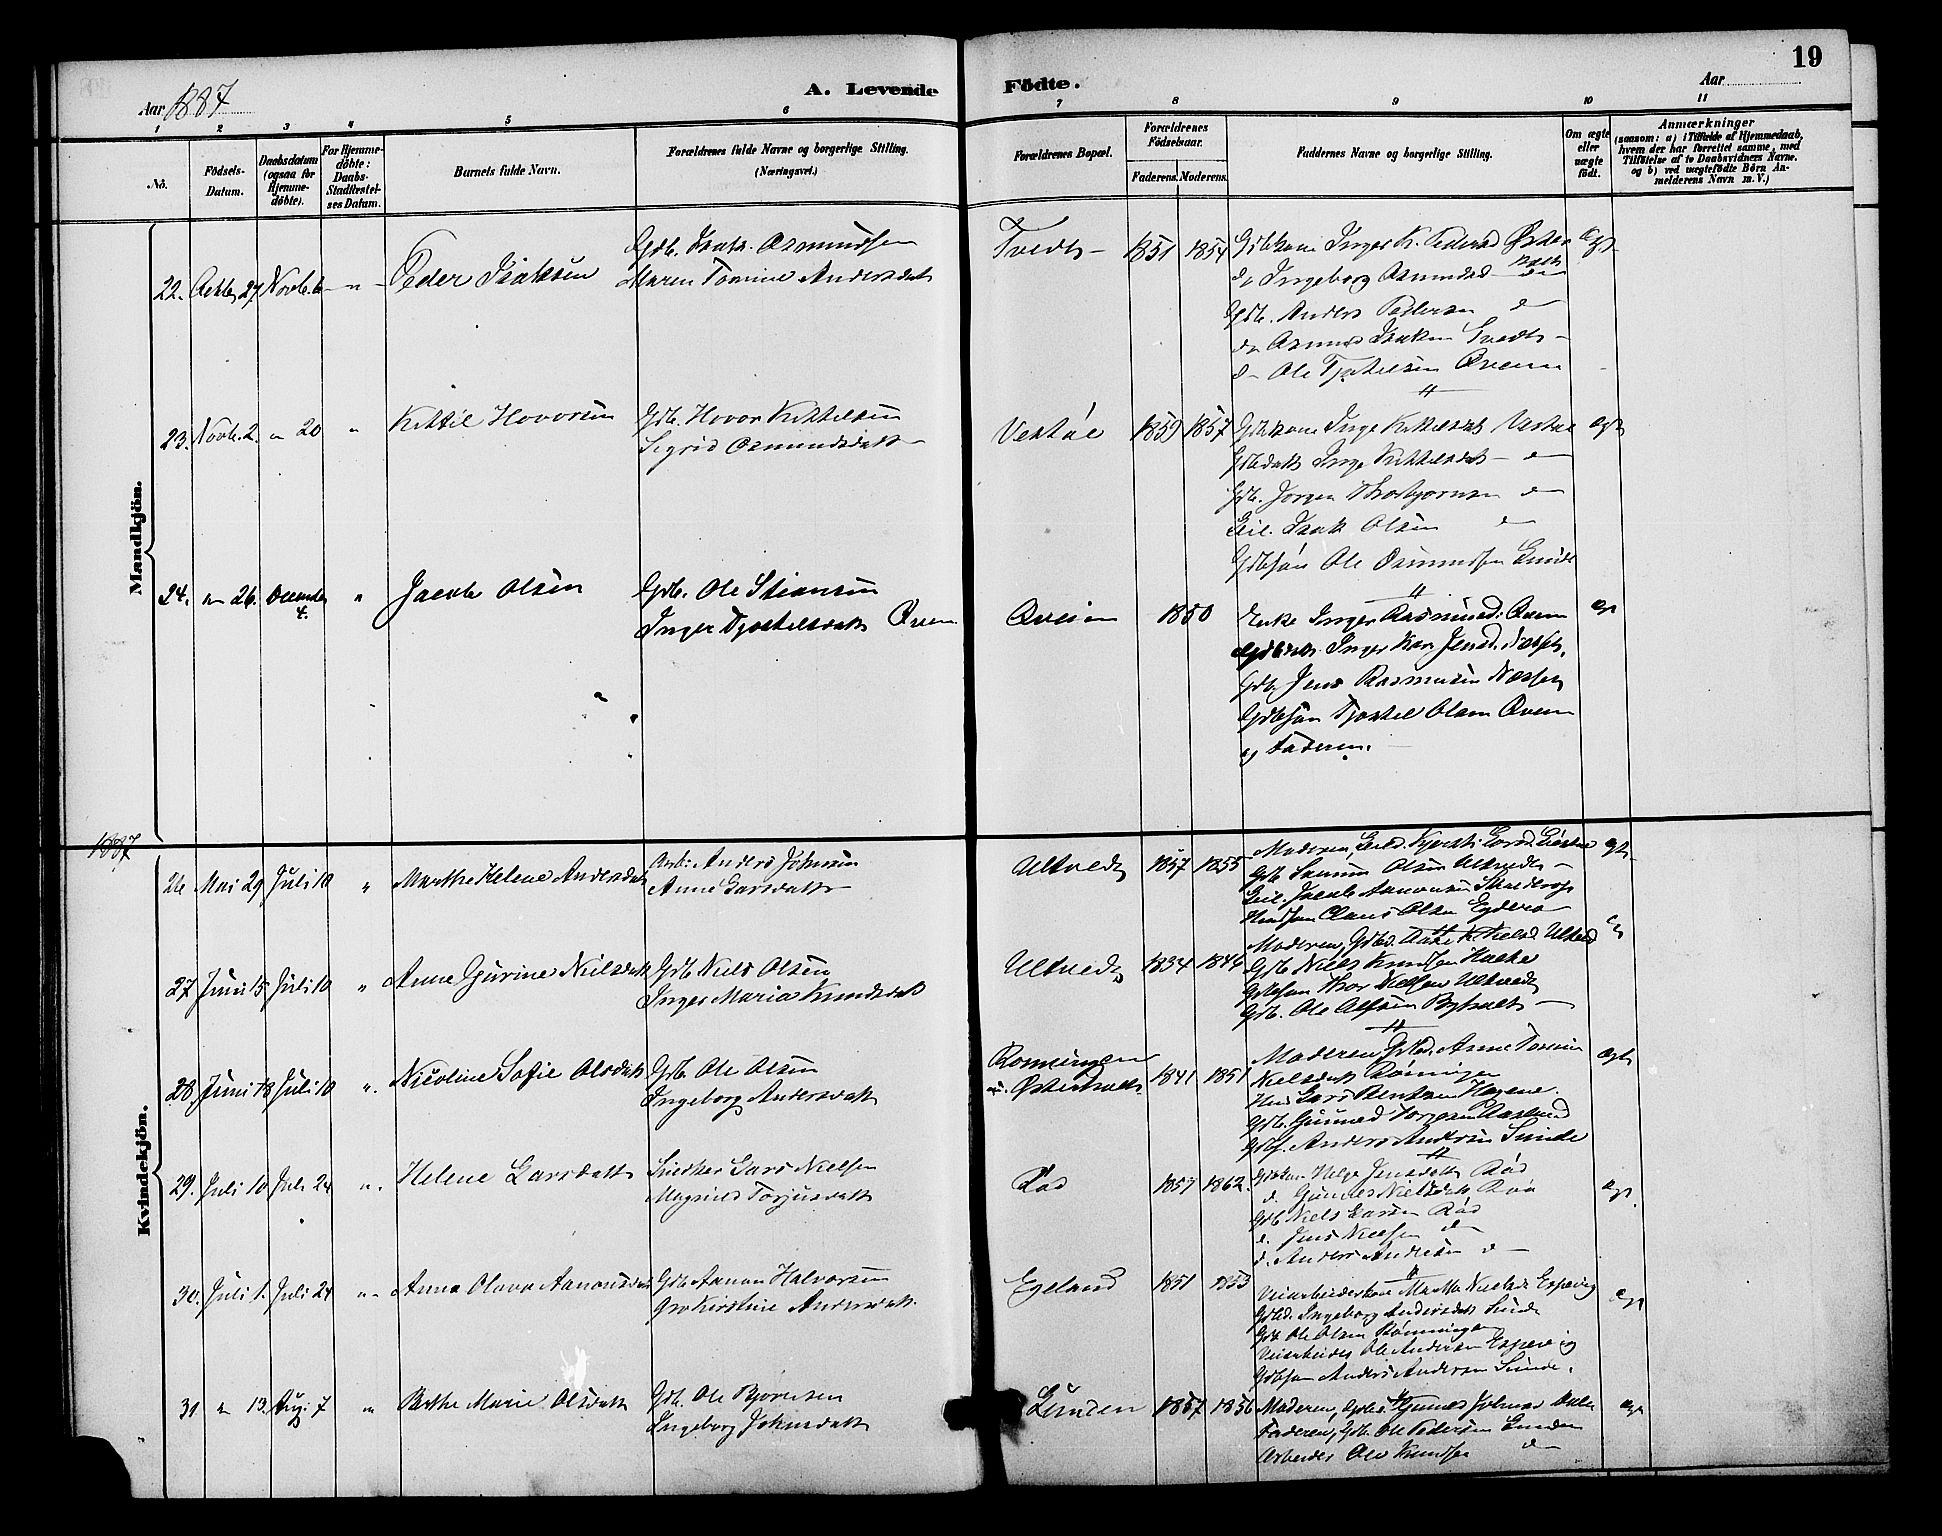 19
Aar 1887
A. Levende Födte.
Aar
1 2 3 4 5 6 7 8 9 10 11
No.
Födsels-Datum.
Daabsdatum (ogsaa for Hjemme-döbte).
For Hjemme-döbte: Daabs-Stadfæstel-ses Datum.
Barnets fulde Navn.
Forældrenes fulde Navne og borgerlige Stilling.
(Næringsvei.)
Forældrenes Bopæl.
Forældrenes Födselsaar.
Faderens. Moderens.
Faddernes Navne og borgerlige Stilling.
Om ægte eller uægte födt.
Anmærkninger
(saasom: a) i Tilfælde af Hjemmedaab, hvem der har forrettet samme, med Tilföielse af to Daabsvidners Navne, og b) ved uægtefödte Börn An-melderens Navn m. V.)
Mandkjön.
22. Octbr 27 Novb. 6 - " - Peder Isaksen
Gdb. Isak Osmundsen
Maren Tomine Andersdatt
Tvedt - 1851 1854
Gdbkone Inger K. Pedersd Øster
holt
do Ingeborg Osmundsd do
Gdb. Anders Pedersen do
do Osmund Isaksen Tvedt -
do Ole Tjostelsen Qveim
ægt
23. Novb. 2. " 20 " Kittil Hovorsen
Gdb. Hovor Kittelsen
Sigrid Osmundsdatt
Vestøl 1859 1857
Gdbkone Inge Kittelsdt Vestøl
Gdbdatt Inge Kittelsdt - do
Gdb. Jorgen Thorbjornsen do
Isak Olsen do
Gdbsøn Ole Osmundsen Lunde
ægt
24. " 26. December 4. " Jacob Olsen
Gdb. Ole Stiansen
Inger Tjostelsdatt Qveim
Qveim 1850
Enke Inger Rasmusd. Qveim
Inger Kar. Jensd. Næsset,
Gdb. Jens Rasmusen Næsset
Gdbsøn Tjostel Olsen Qveim
og Faderen.
ægt
1887
Kvindekjön.
26 Mai 29 Juli 10 " Marthe Helene Andersdatt
Arb: Anders Johnsen
Anne Larsdatt
Ultvedt 1857 1855
Moderen, Kjersti Larsd
Gdb Olsen Ultvedt -
Jacob Aanonsen
Claus Olsen Eydern
ægt
27 Juni 15 Juli 10 " Anne Gurine Nielsdatt
Gdb. Niels Olsen
Inger Maria Knudsdatt
Ultvedt 1834 1844
Moderen, Gdbd. Ultved
Gdb Niels Knudsen
Gdbsøn Thor Nielsen Ultvedt
Gdb. Ole Olsen
28. Juni 18 Juli 10 " Nicoline Sofie Olsdatt
Gdb. Ole Olsen
Ingeborg Andersdatt
Rønningen
u. Østerholt 1841 1851
Moderen, Gdbd. Anne Tomine
Nielsdatt Rønningen
Lars Bentsen
Gdb. Gunned
Anders Andersen Sunde
ægt
29. Juli 10 Juli 24 " Helene Larsdatt
Snedker Lars Nielsen
Magnild Torjusdatt
Rød 1857 1862.
Gdbkone Helge Jensdatt Rød
d. Nielsdatt Rød
Gdb Niels Larsen Rød
d. Jens Nielsen do
d. Anders Andersen do
ægt.
30. Juli 1. Juli 24 " Anna Olava Aanonsdatt
Gdb. Aanon Halvorsen
Gro Kirstine Andersdatt.
Egeland 1851 1853
Veiarbeiderkone Martha Nielsdt Espevig
Gdbd. Ingeborg Andersdatt Sunde
Gdb Ole Olsen Rønningen
Veiarbeider Ole Andersen Espevig
Gdbsøn Anders Andersen Sunde.
ægt
31 " 13. Aug. 7 " Berthe Marie Olsdatt
Gdb. Ole Bjørnsen
Ingeborg Johnsdatt
Lunden 1857 1856
Moderen, Gunnild Johnsd
Faderen, Gdb. Ole Pedersen Lunden
Arbeider Ole Knudsen do
ægt